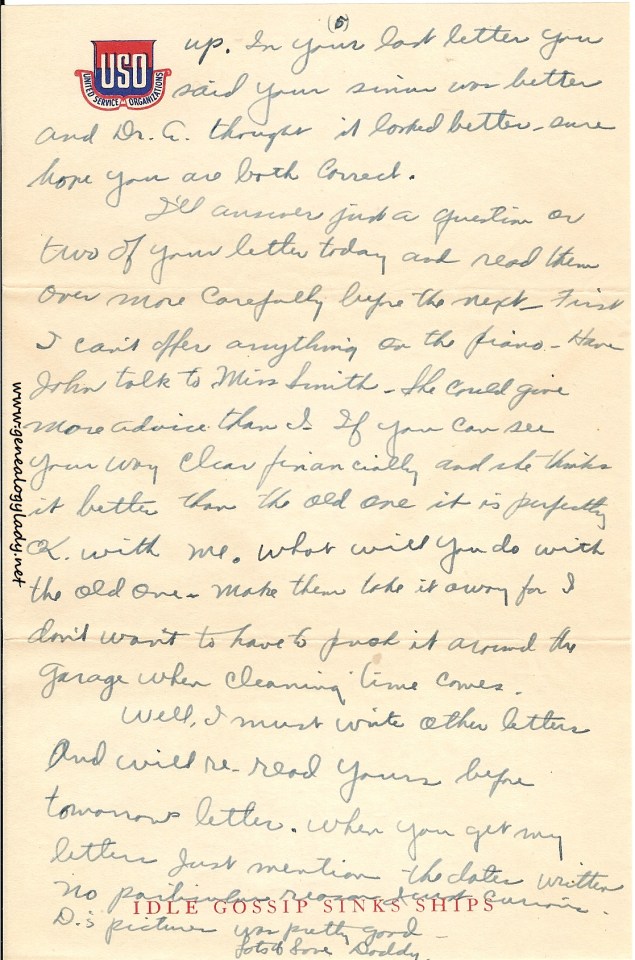 (5)
USO
UNITED SERVICE ORGANIZATIONS
up. In your last letter you
said your sinus was better
and Dr. G. thought it looked better - sure
hope you are both correct.
I'll answer just a question or
two of your letter today and read them
over more carefully before the next - First
I can't offer anything on the piano - Have
John talk to Miss Smith - She could give
more advice than I. If you can see
your way clear financially and she thinks
it better than the old one it is perfectly
OK. with me. What will you do with
the old one - make them take it away for I
don't want to have to push it around the
garage when cleaning time comes.
Well, I must write other letters
and will re-read yours before
tomorrows letter. When you get my
letters just mention the dates written
no particular reason just curious.
IDLE GOSSIP SINKS SHIPS
D.'s picture was pretty good -
Lots of Love Daddy.
www.genealogylady.net